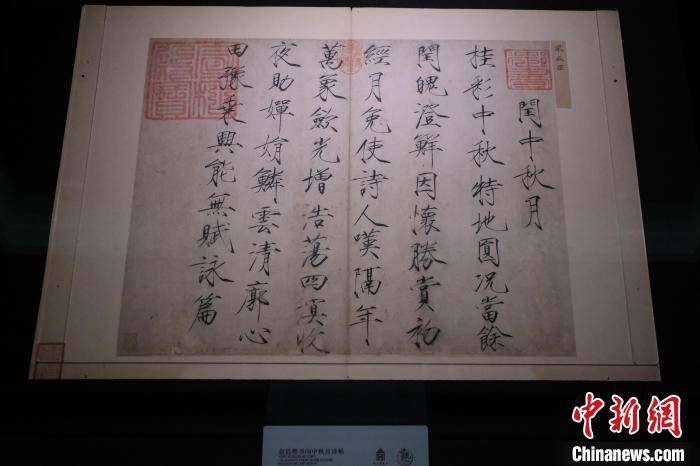 閏中秋月
桂彩中秋特地圓况當餘
閏魄澄鮮因懷勝賞初
經月免使詩人嘆隔年
萬象斂光增浩蕩四溟收
夜助嬋娟鱗雲清廓心
田豫乘興能無賦詠篇
赵佶楷书闰中秋月诗帖
中新网
Chinanews.com